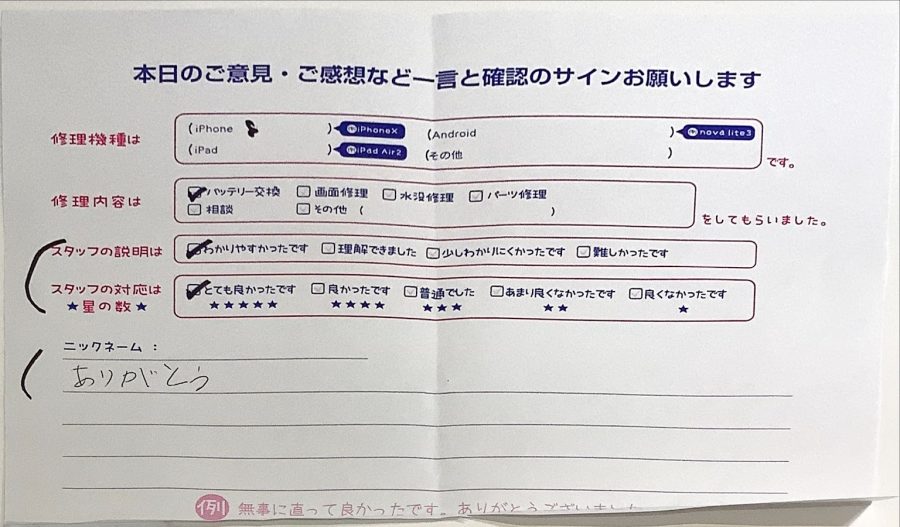 本日のご意見・ご感想など一言と確認のサインお願いします
修理機種は
(iPhone 8 ) 例iPhoneX (Android ) 例nova lite3
(iPad ) 例iPad Air2 (その他 ) です。
修理内容は
バッテリー交換 画面修理 水没修理 パーツ修理
相談 その他 ( ) をしてもらいました。
スタッフの説明は
わかりやすかったです 理解できました 少しわかりにくかったです 難しかったです
スタッフの対応は
★星の数★
とても良かったです 良かったです 普通でした あまり良くなかったです 良くなかったです
★★★★★ ★★★★ ★★★ ★★ ★
ニックネーム：
ありがとう
例 無事に直って良かったです。ありがとうございました